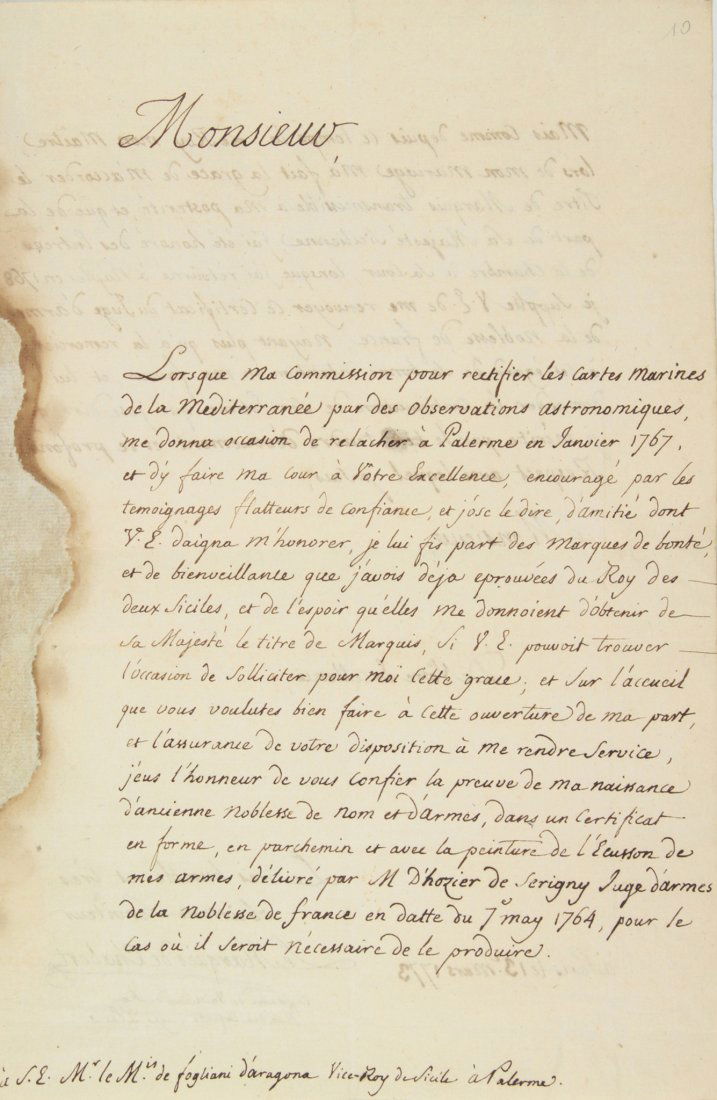 10
Monsieur
Lorsque ma Commission pour rectifier les cartes marines
de la Mediterranée par des observations astronomiques,
me donna occasion de relacher à Palerme en Janvier 1767,
et d'y faire ma cour à Vôtre Excellence, encouragé par les
temoignages flatteurs de confiance, et j'ose le dire, d'amitié dont
V.e E. daigna m'honorer, je lui fis part des marques de bonté,
et de bienveillance que j'avois déja eprouvées du Roy des
deux Siciles, et de l'espoir qu'elles me donnoient d'obtenir de
sa Majesté le titre de Marquis, si V. E. pouvoit trouver
l'occasion de solliciter pour moi cette grace; et sur l'accueil
que vous voulutes bien faire à cette ouverture de ma part,
et l'assurance de votre disposition à me rendre service,
j'eus l'honneur de vous confier la preuve de ma naissance
d'ancienne noblesse de nom et d'armes, dans un certificat
en forme, en parchemin et avec la peinture de l'Ecusson de
mes armes, délivré par M D'hozier de Serigny Juge d'armes
de la noblesse de france en datte du 7.o may 1764, pour le
cas où il seroit nécessaire de le produire.
S. E. M.r le M.is de fogliani d'aragona Vice-Roy de Sicile à Palerme.